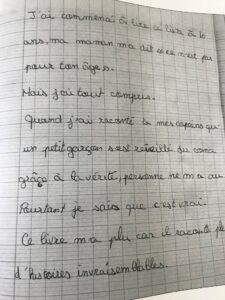 J'ai commencé à lire ce livre à 10
ans, ma maman m'a dit ce n'est pas
pour ton âge.
Mais j'ai tout compris.
Quand j'ai raconté à mes copains qu'
un petit garçon s'est réveillé du coma
grâce à la vérité, personne ne m'a
Pourtant je sais que c'est vrai.
Ce livre m'a plu car il raconte
d'histoires invraisemblables.